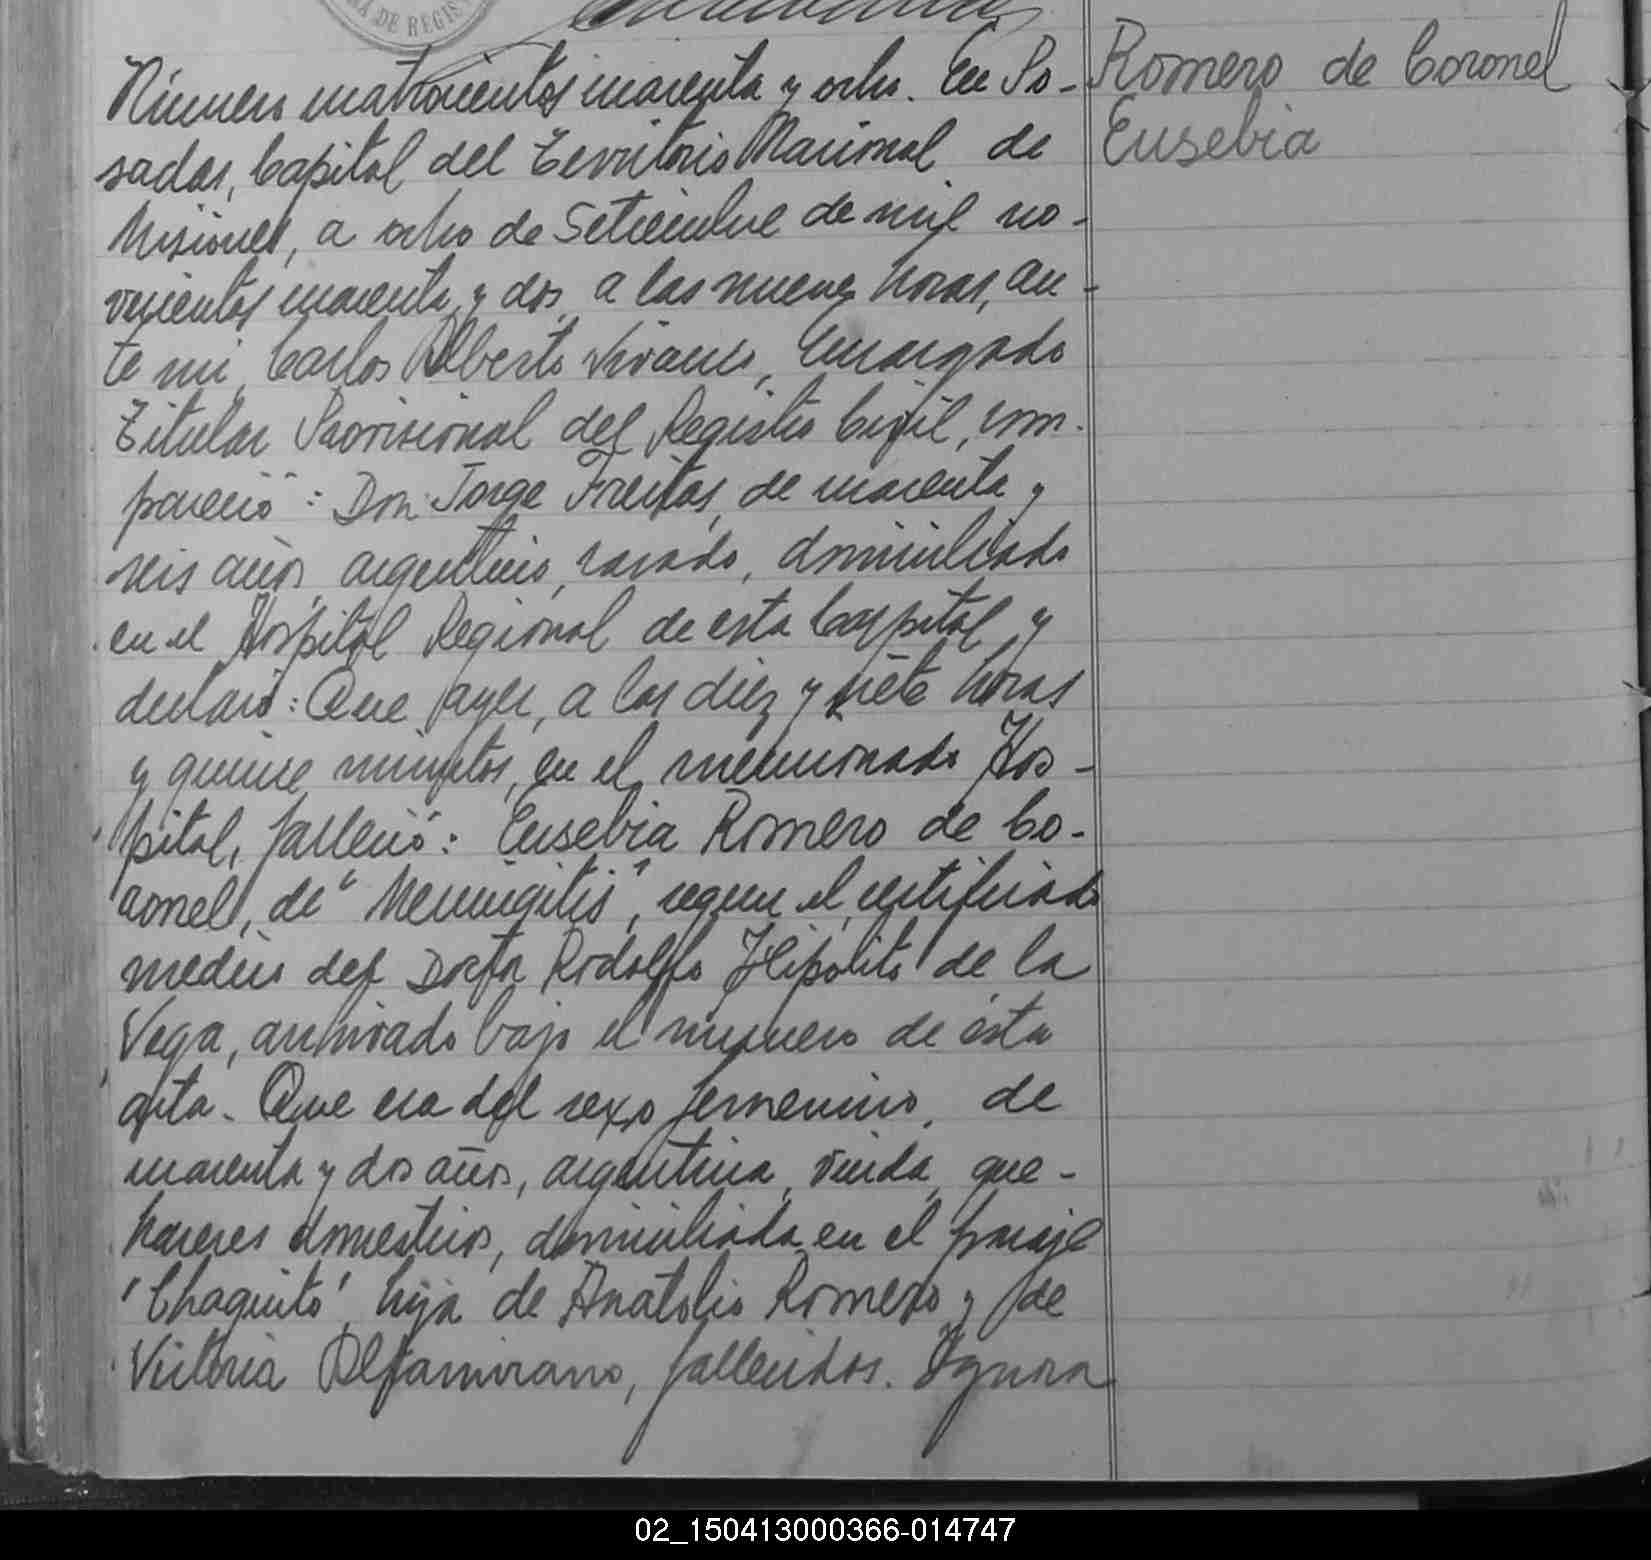 MA DE REGIS
Número cuatrocientos cuarenta y ocho. En Po-
sadas, Capital del Territorio Nacional de
Misiones, a ocho de Setiembre de mil no-
vecientos cuarenta y dos, a las nueve horas, an-
te mi, Carlos Alberto Vivanco, Encargado
Titular Provisional del Registro Civil, com-
pareció: Don Jorge Freitas, de cuarenta y
seis años, argentino, casado, domiciliado
en el Hospital Regional de esta Capital y
declaró: Que ayer, a las diez y siete horas
y quince minutos, en el mencionado Hos-
pital, falleció: Eusebia Romero de Co-
ronel, de "Meningitis", segun el certificado
medico del Doctor Rodolfo Hipólito de la
Vega, archivado bajo el numero de ésta
acta. Que era del sexo femenino, de
cuarenta y dos años, argentina, viuda, que-
haceres domesticos, domiciliada en el paraje
"Chaquito", hija de Anatolio Romero y de
Victoria Altamirano, fallecidos. Ignora
Romero de Coronel
Eusebia
02_150413000366-014747